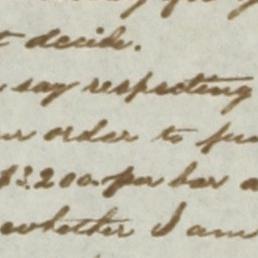 decide.
say respecting
order to
$3.200. per bar
whether I am